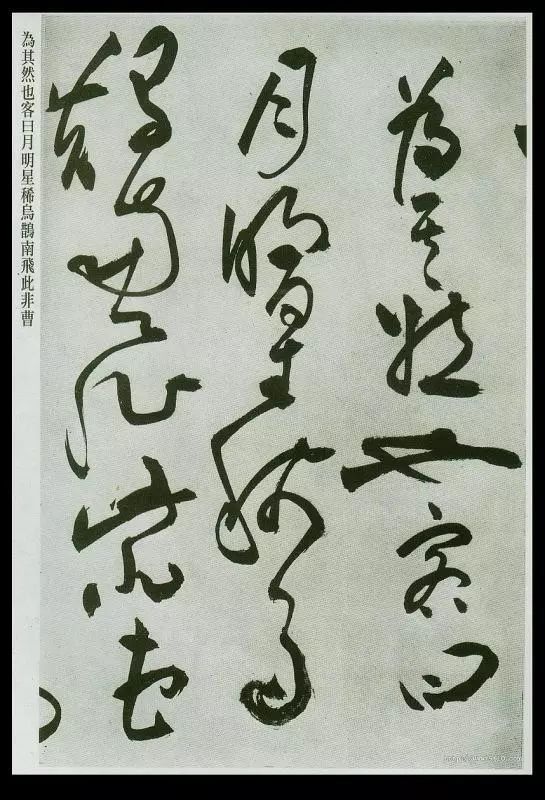 為其然也客曰
月明星稀烏
鵲南飛此非曹
為其然也客曰月明星稀烏鵲南飛此非曹